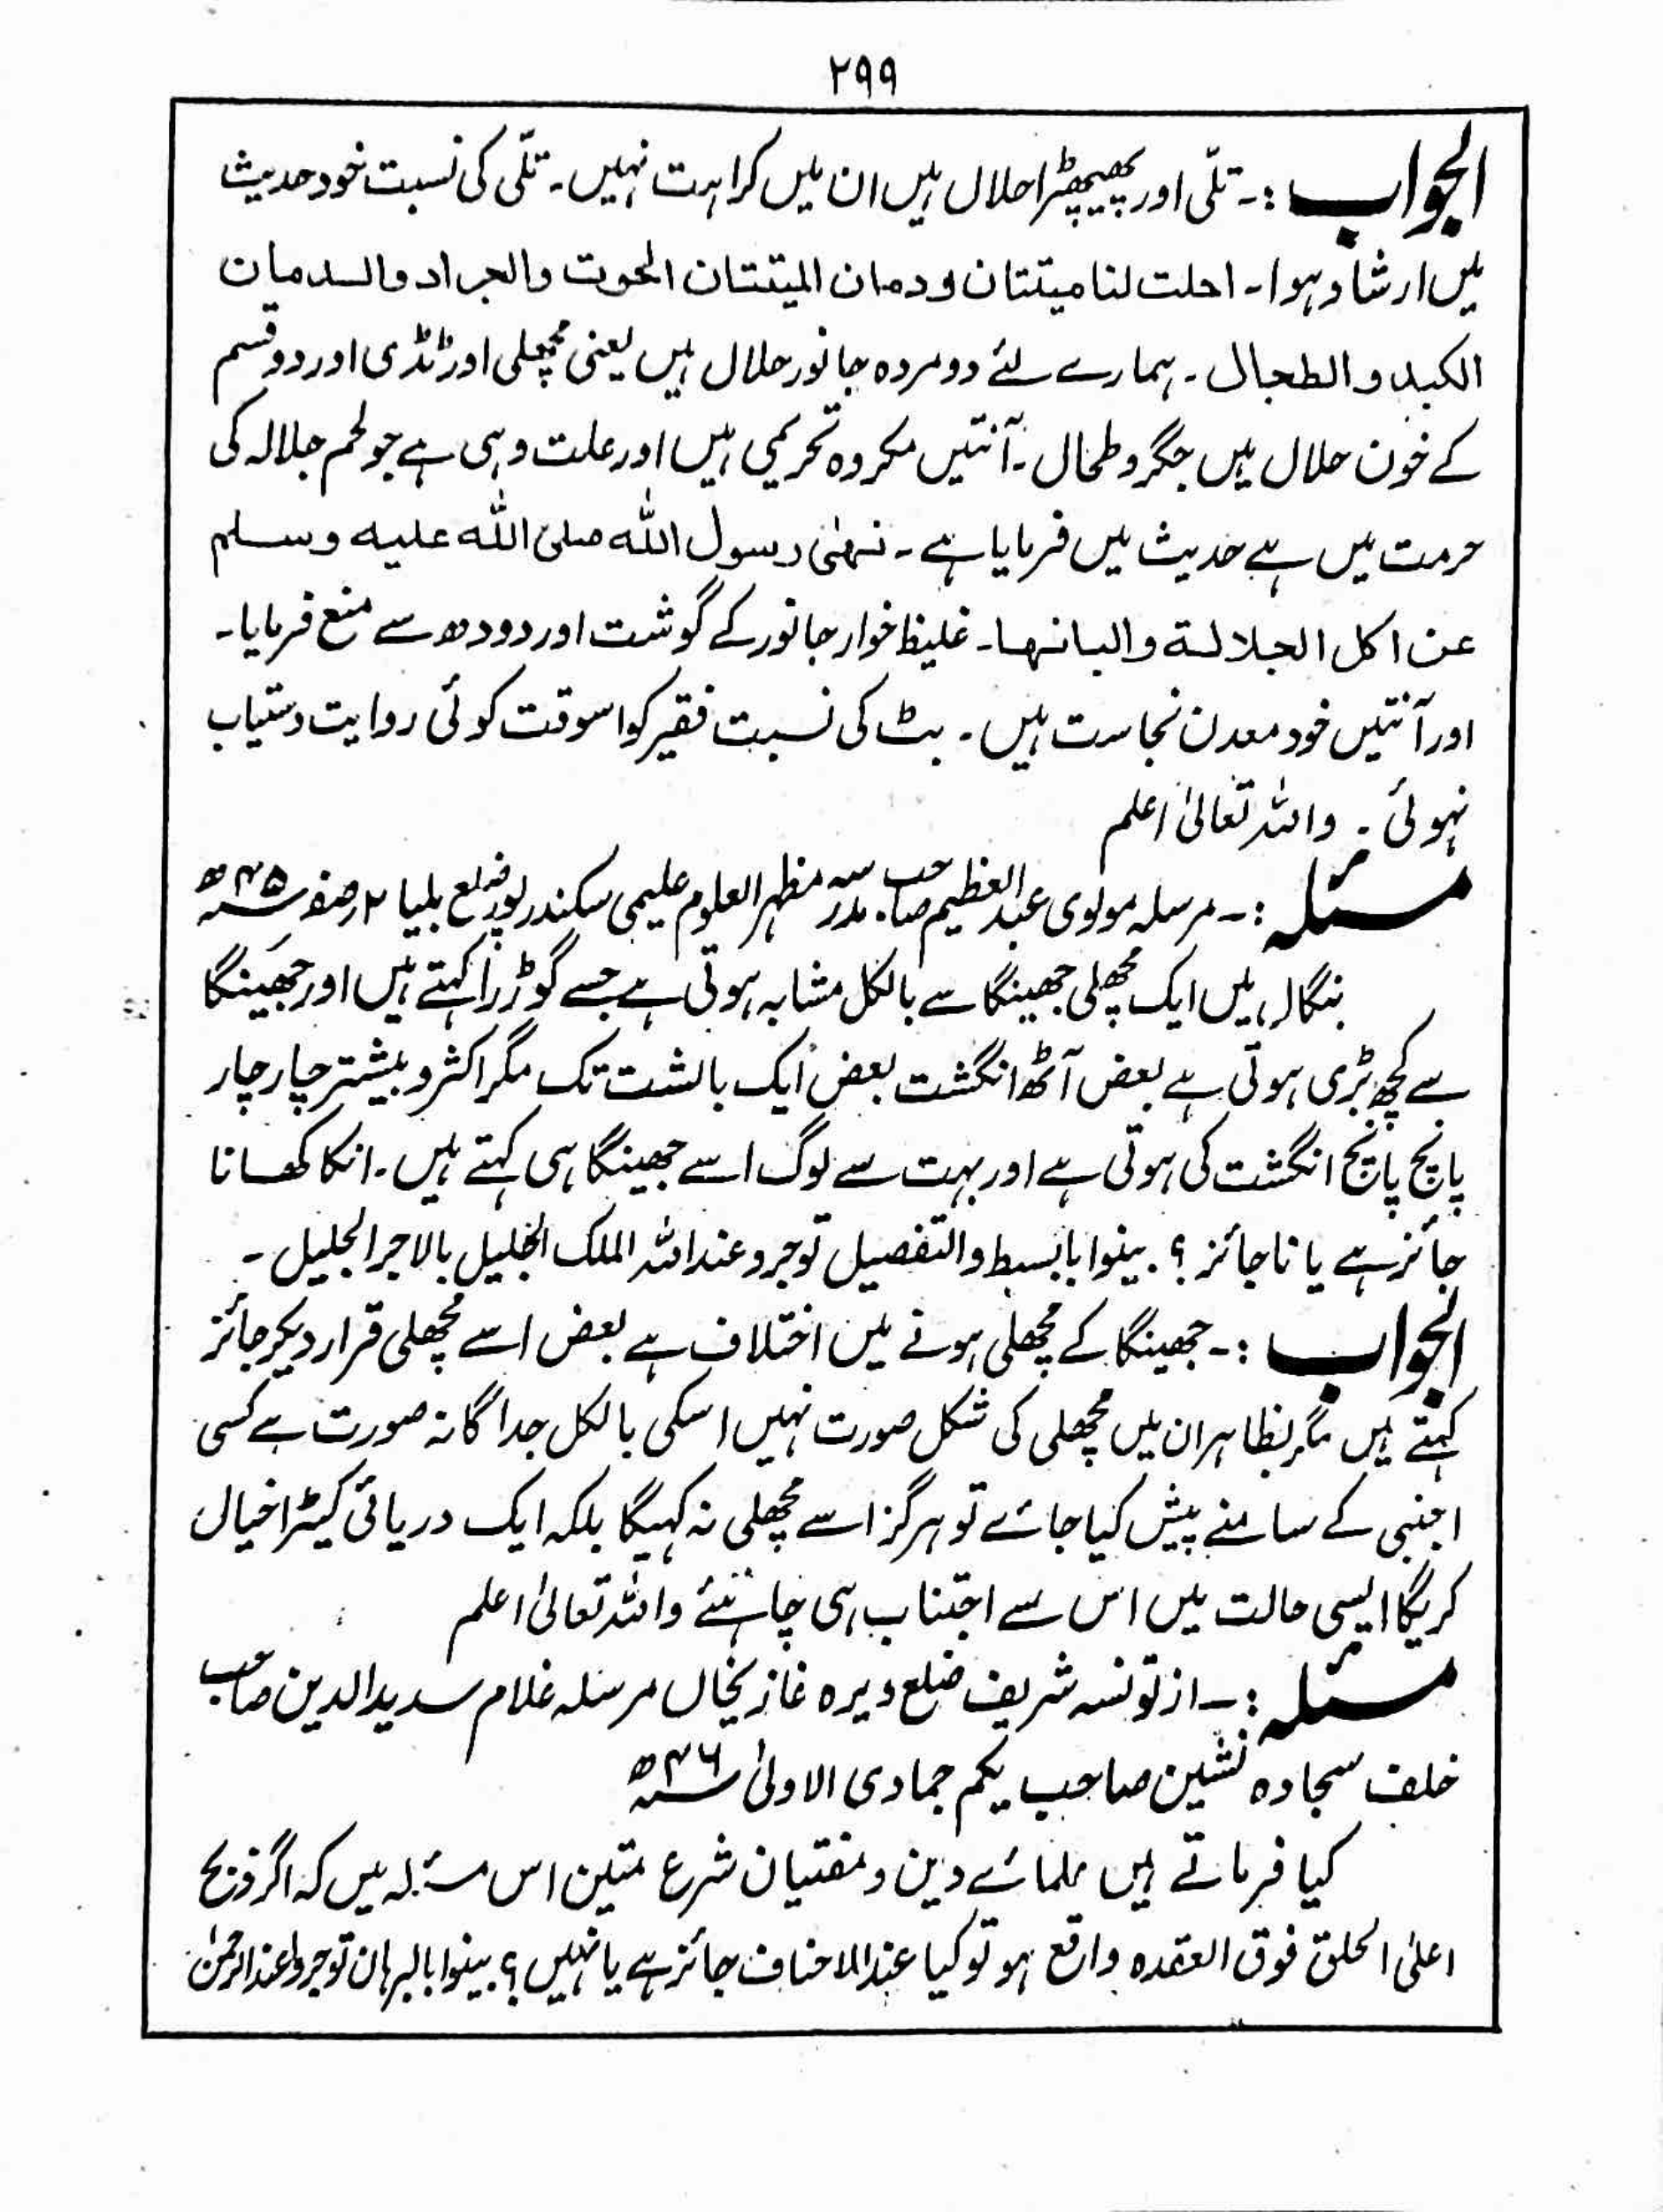 ۲۹۹
الجواب :۔ تلّی اور پھیپھڑا حلال ہیں ان میں کراہت نہیں۔ تلّی کی نسبت خود حدیث
میں ارشاد ہوا۔ احلت لنا میتتان ودمان المیتتان الحوت والجراد والدمان
الکبد والطحال۔ ہمارے لئے دو مردہ جانور حلال ہیں یعنی مچھلی اور ٹڈی اور دو قسم
کے خون حلال ہیں جگر و طحال۔ آنتیں مکروہ تحریمی ہیں اور علت وہی ہے جو لحم جلالہ کی
حرمت میں ہے حدیث میں فرمایا ہے۔ نہیٰ رسول اللہ صلی اللہ علیہ وسلم
عن اکل الجلالۃ والبانہا۔ غلیظ خوار جانور کے گوشت اور دودھ سے منع فرمایا۔
اور آنتیں خود معدن نجاست ہیں۔ بٹ کی نسبت فقیر کو اسوقت کوئی روایت دستیاب
نہوئی۔ واللہ تعالیٰ اعلم
مسئلہ :۔ مرسلہ مولوی عبدالعظیم صاحب مدرسہ مظہر العلوم علیمی سکندرپور ضلع بلیا ۲ صفر سنہ ۴۵ھ
بنگال میں ایک مچھلی جھینگا سے بالکل مشابہ ہوتی ہے جسے گوڑرا کہتے ہیں اور جھینگا
سے کچھ بڑی ہوتی ہے بعض آٹھ انگشت بعض ایک بالشت تک مگر اکثر و بیشتر چار چار
پانچ پانچ انگشت کی ہوتی ہے اور بہت سے لوگ اسے جھینگا ہی کہتے ہیں۔ انکا کھانا
جائز ہے یا ناجائز؟ بینوا بالبسط والتفصیل توجروعنداللہ الملک الجلیل بالاجر الجلیل۔
الجواب :۔ جھینگا کے مچھلی ہونے میں اختلاف ہے بعض اسے مچھلی قرار دیکر جائز
کہتے ہیں مگر بظاہر ان میں مچھلی کی شکل صورت نہیں اسکی بالکل جداگانہ صورت ہے کسی
اجنبی کے سامنے پیش کیا جائے تو ہرگز اسے مچھلی نہ کہیگا بلکہ ایک دریائی کیڑا خیال
کریگا ایسی حالت میں اس سے اجتناب ہی چاہئے واللہ تعالیٰ اعلم
مسئلہ :۔ از تونسہ شریف ضلع ڈیرہ غازیخاں مرسلہ غلام سدیدالدین صاحب
خلف سجادہ نشین صاحب یکم جمادی الاولیٰ سنہ ۴۶ھ
کیا فرماتے ہیں علمائے دین و مفتیان شرع متین اس مسئلہ میں کہ اگر ذبح
اعلیٰ الحلق فوق العقدہ واقع ہو تو کیا عندالاحناف جائز ہے یا نہیں؟ بینوا بالبرہان توجروا عندالرحمٰن